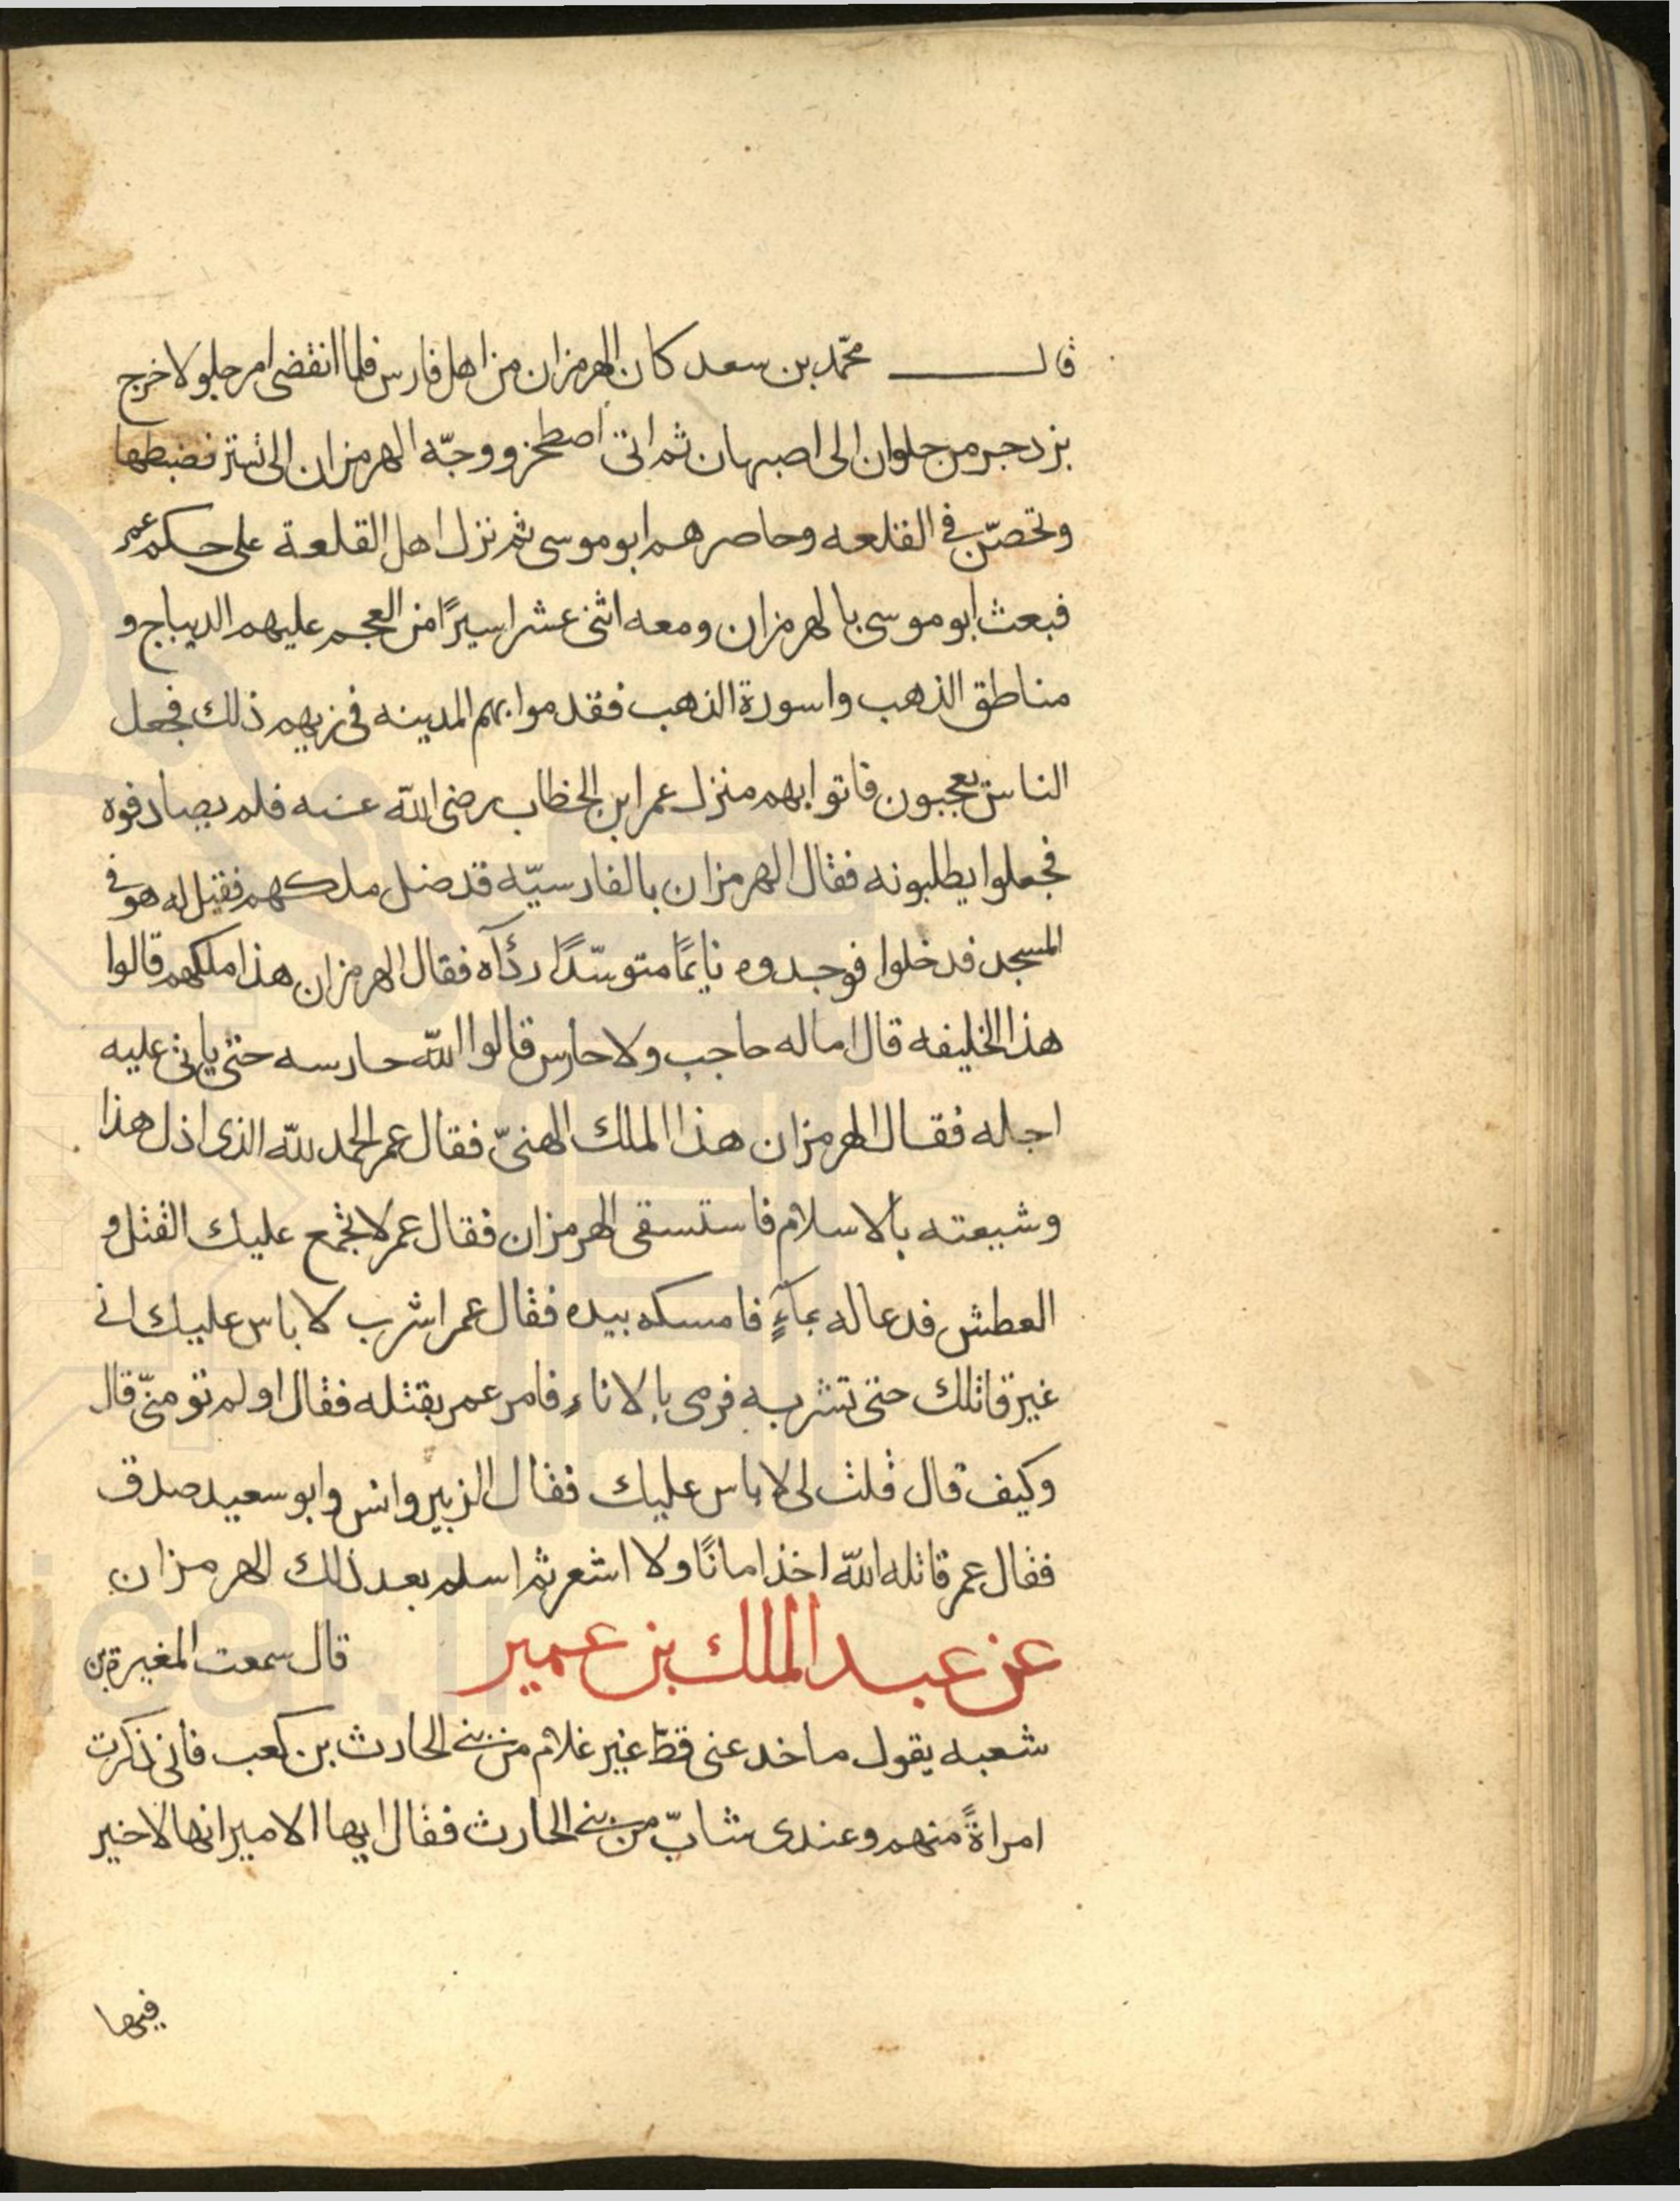 قال محمّد بن سعد كان الهرمزان من اهل فارس فلما انقضى امر جلولا خرج
يزدجر من حلوان الى اصبهان ثم اتى اصطخر ووجّه الهرمزان الى تستر فضبطها
وتحصّن في القلعه وحاصرهم ابو موسى ثم نزل اهل القلعة على حكم عمر
فبعث ابو موسى بالهرمزان ومعه اثنى عشر اسيرًا من العجم عليهم الديباج و
مناطق الذهب واسورة الذهب فقدموا بهم المدينه في زيهم ذلك فجعل
الناس يعجبون فاتوا بهم منزل عمر ابن الخطاب رضى الله عنه فلم يصادفوه
فجعلوا يطلبونه فقال الهرمزان بالفارسيّه قد ضل ملكهم فقيل له هو في
المسجد فدخلوا فوجدوه نايمًا متوسّدًا ردآءه فقال الهرمزان هذا ملكهم قالوا
هذا الخليفه قال اما له حاجب ولا حارس قالوا الله حارسه حتى ياتي عليه
اجله فقال الهرمزان هذا الملك الهنيّ فقال عمر الحمد لله الذى اذل هذا
وشيعته بالاسلام فاستسقى الهرمزان فقال عمر لا يجمع عليك القتل و
العطش فدعا له بمآءٍ فامسكه بيده فقال عمر اشرب لا باس عليك انى
غير قاتلك حتى تشربه فرمى بالاناء فامر عمر بقتله فقال اولم تومنّي قال
وكيف قال قلت لى لا باس عليك فقال الزبير وانس وابو سعيد صدق
فقال عمر قاتله الله اخذ امانًا ولا اشعر ثم اسلم بعد ذلك الهرمزان
عن عبد الملك بن عمير قال سمعت المغيرة بن
شعبه يقول ما خدعنى قطّ غير غلام من بني الحارث بن كعب فانى ذكرت
امراةً منهم وعندى شابّ من بني الحارث فقال ايها الامير انها لا خير
فيها